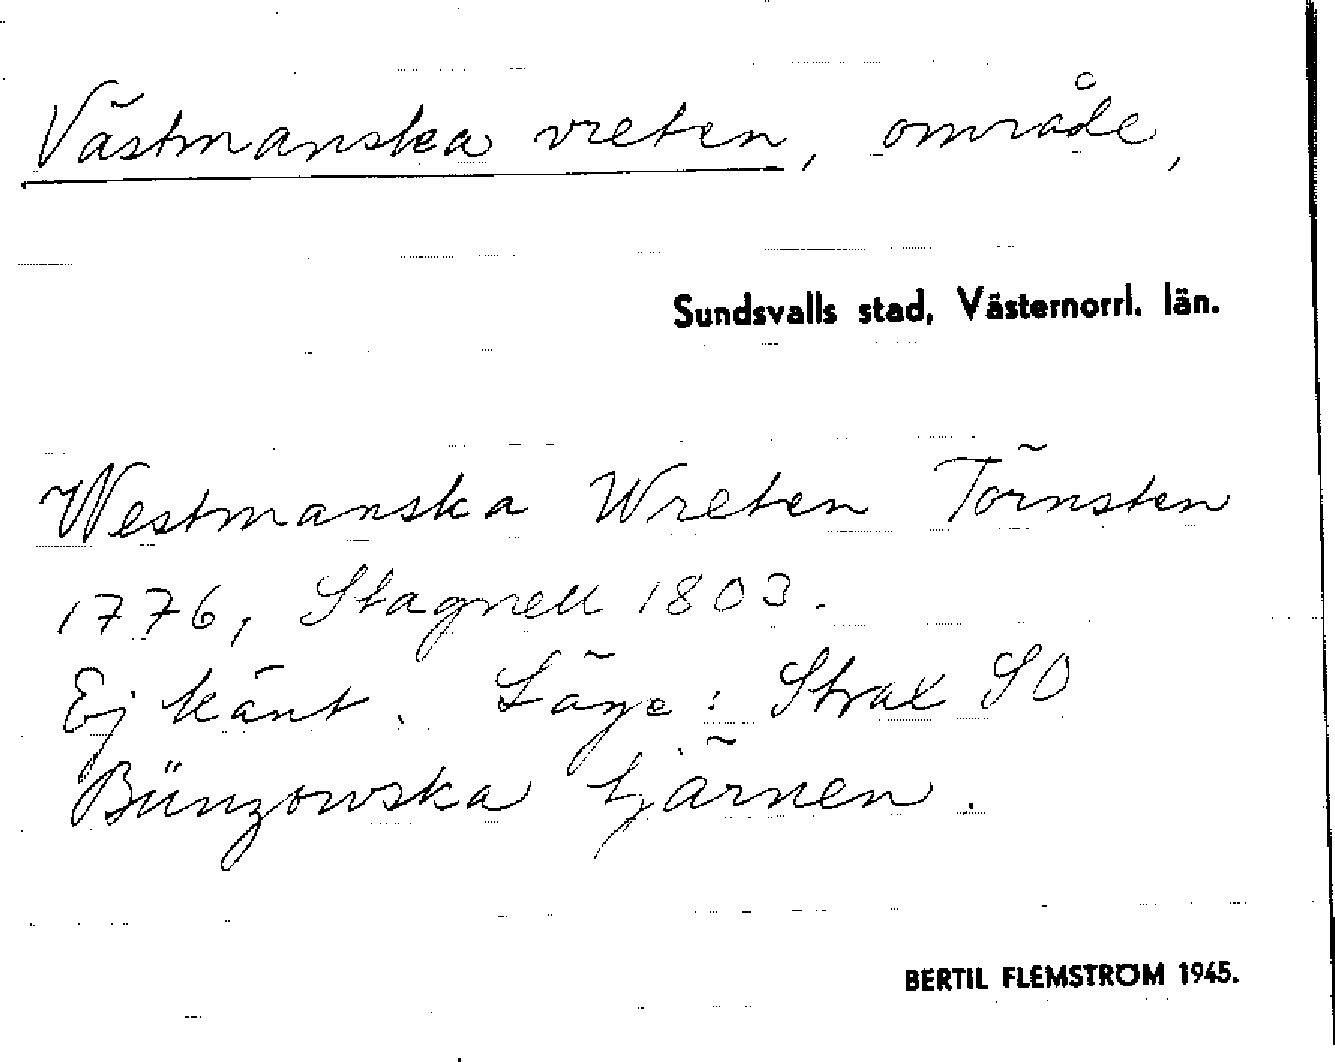 Västmanska vreten, område,
Sundsvalls stad, Västernorrl. län.
Westmanska Wreten Törnsten
1776, Stagnell 1803.
Ej känt. Läge: Strax SO
Bünzowska tjärnen.
BERTIL FLEMSTRÖM 1945.